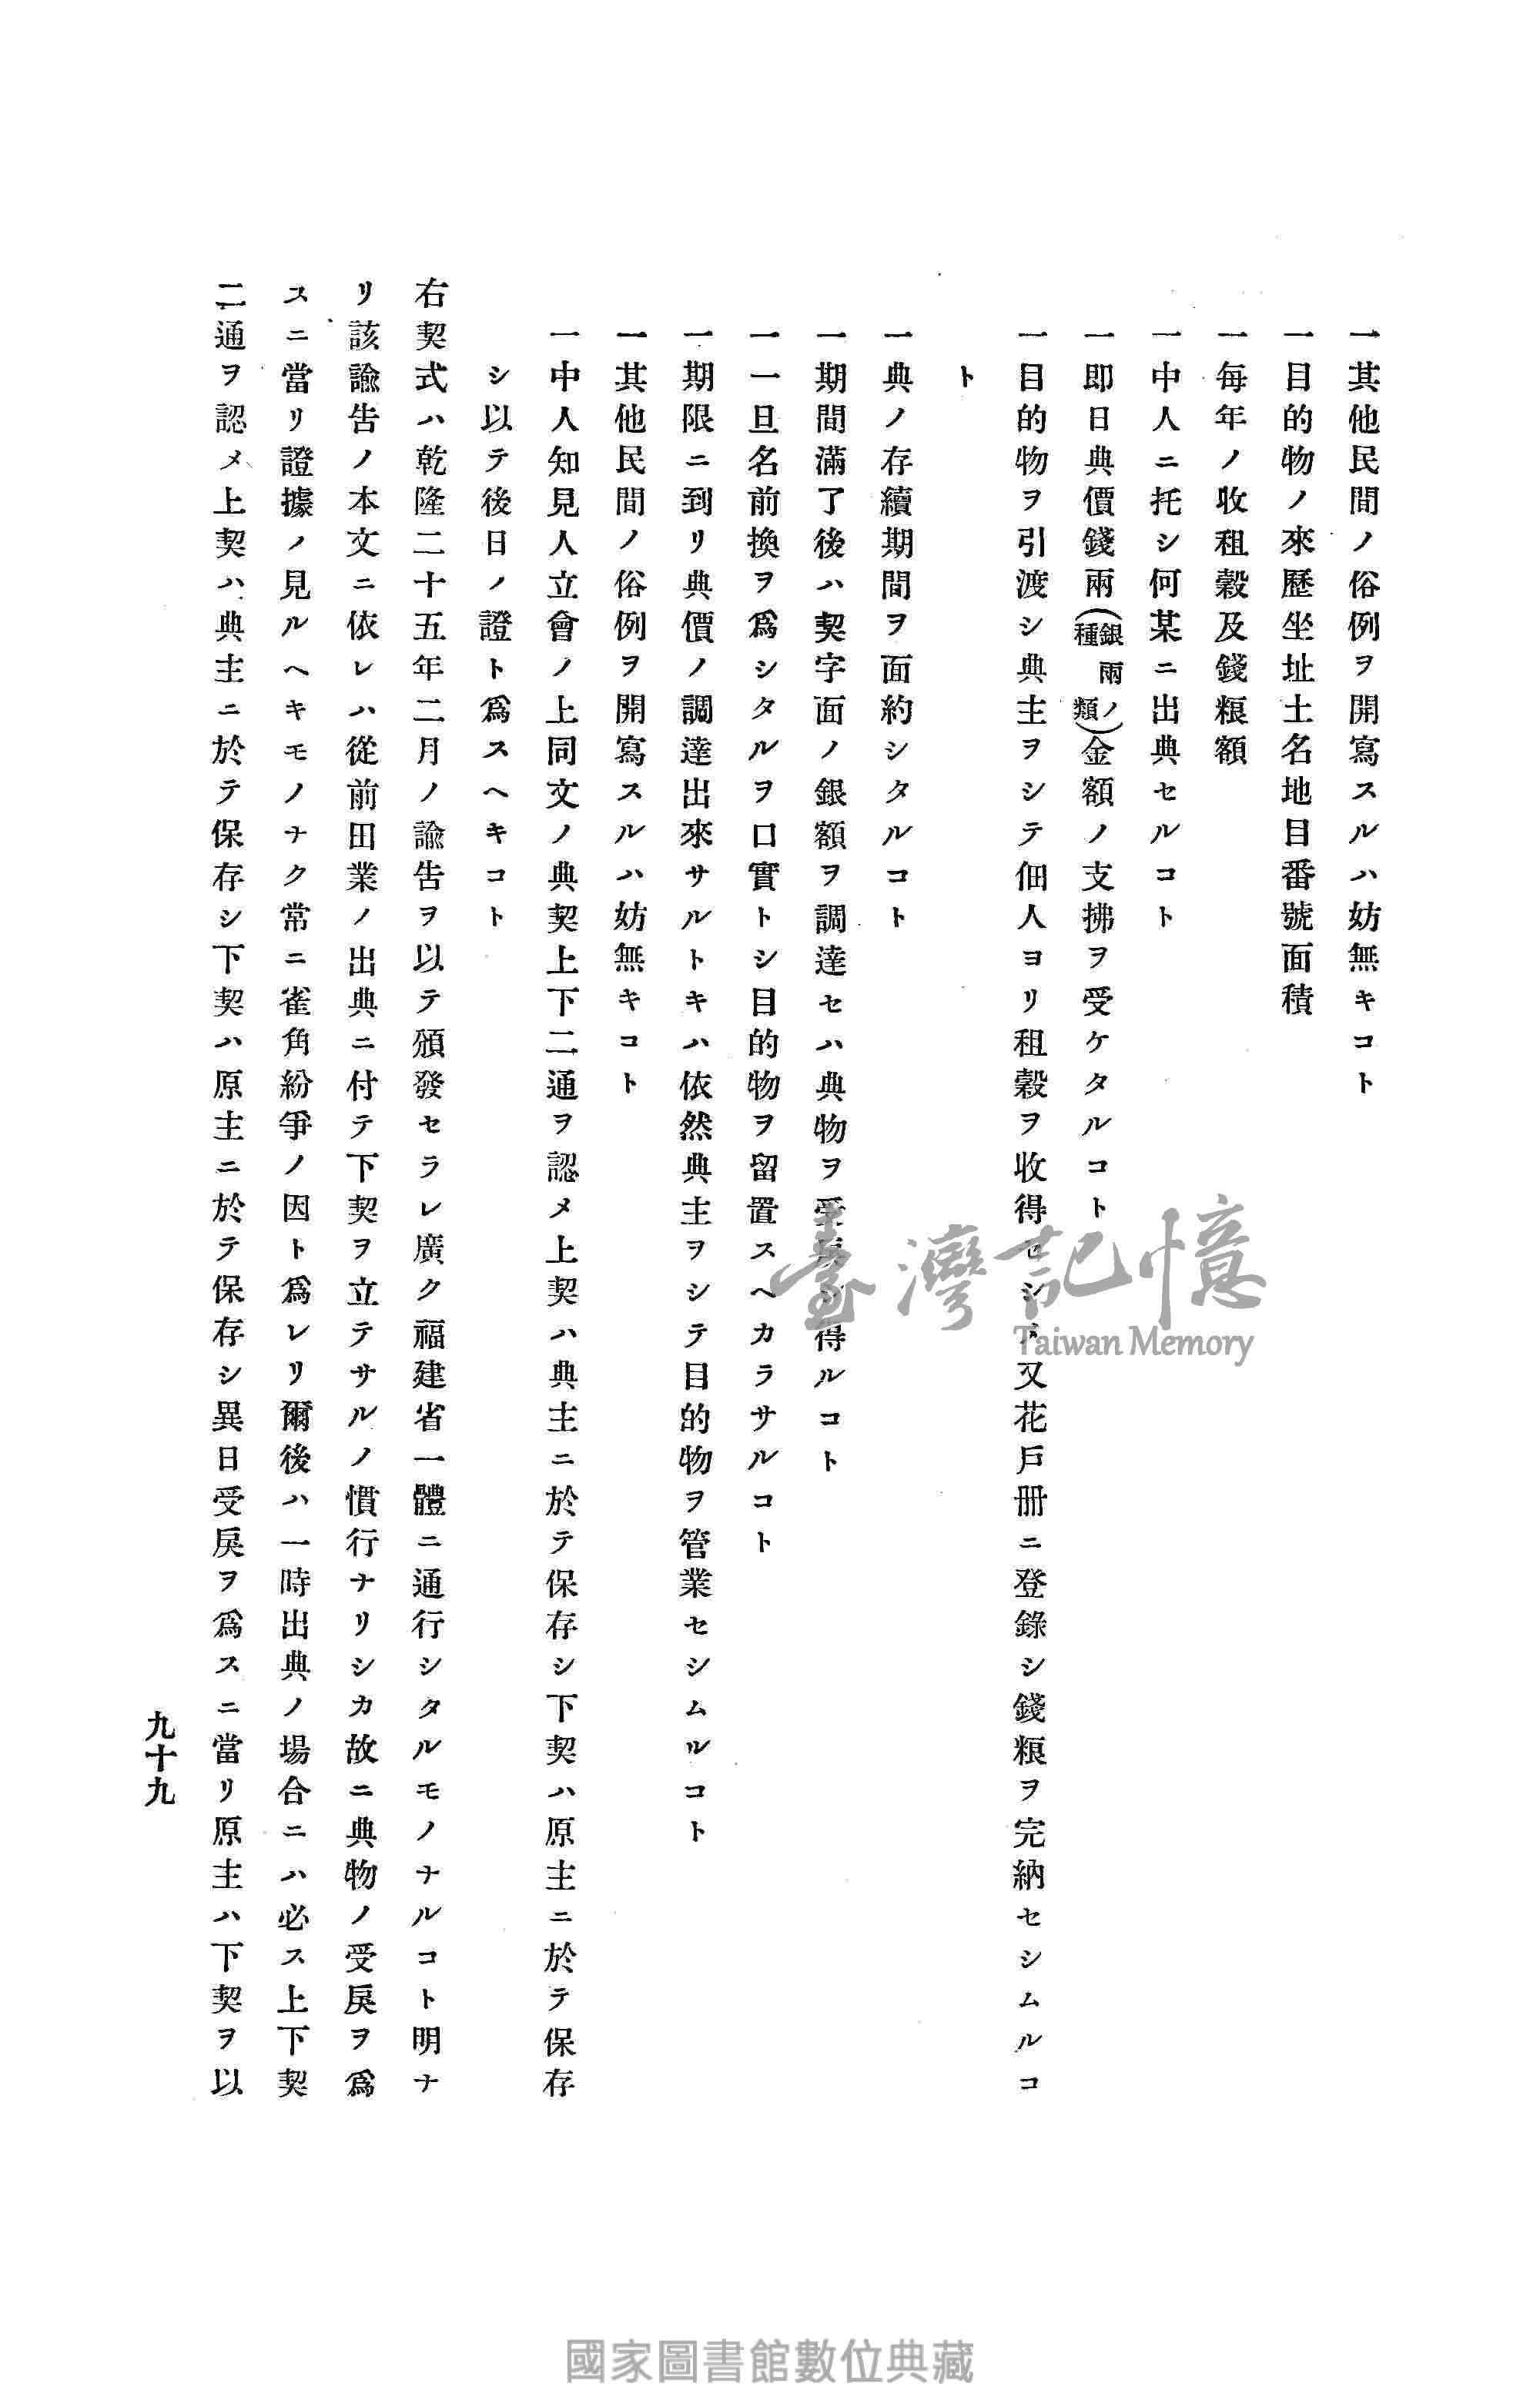 一其他民間ノ俗例ヲ開寫スルハ妨無キコト
一目的物ノ來歷坐址土名地目番號面積
一每年ノ收租穀及錢粮額
一中人ニ托シ何某ニ出典セルコト
一即日典價錢兩(銀兩ノ種類)金額ノ支拂ヲ受ケタルコト
一目的物ヲ引渡シ典主ヲシテ佃人ヨリ租穀ヲ收得セシメ又花戶冊ニ登錄シ錢粮ヲ完納セシムルコ
ト
一典ノ存續期間ヲ面約シタルコト
一期間滿了後ハ契字面ノ銀額ヲ調達セハ典物ヲ受戾シ得ルコト
一一旦名前換ヲ爲シタルヲ口實トシ目的物ヲ留置スヘカラサルコト
一期限ニ到リ典價ノ調達出來サルトキハ依然典主ヲシテ目的物ヲ管業セシムルコト
一其他民間ノ俗例ヲ開寫スルハ妨無キコト
一中人知見人立會ノ上同文ノ典契上下二通ヲ認メ上契ハ典主ニ於テ保存シ下契ハ原主ニ於テ保存
シ以テ後日ノ證ト爲スヘキコト
右契式ハ乾隆二十五年二月ノ諭吿ヲ以テ頒發セラレ廣ク福建省一體ニ通行シタルモノナルコト明ナ
リ該諭吿ノ本文ニ依レハ從前田業ノ出典ニ付テ下契ヲ立テサルノ慣行ナリシカ故ニ典物ノ受戾ヲ爲
スニ當リ證據ノ見ルヘキモノナク常ニ雀角紛爭ノ因ト爲レリ爾後ハ一時出典ノ場合ニハ必ス上下契
二通ヲ認メ上契ハ典主ニ於テ保存シ下契ハ原主ニ於テ保存シ異日受戾ヲ爲スニ當リ原主ハ下契ヲ以
九十九
臺灣記憶
Taiwan Memory
國家圖書館數位典藏